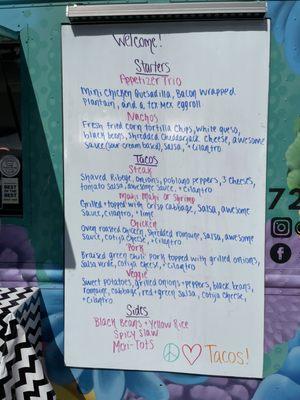 Welcome!
Starters
Appetizer Trio
Mini Chicken Quesadilla, Bacon Wrapped
Plantain, and a Tex Mex eggroll
Nachos
Fresh fried corn tortilla chips, white queso,
black beans, shredded cheddar jack cheese, awesome
Sauce (sour cream based), salsa, + cilantro
Tacos
Steak
Shaved Ribeye, onions, poblano peppers, 3 cheeses,
tomato salsa, awesome sauce, + cilantro
Mahi Mahi or Shrimp
Grilled + topped with crisp cabbage, Salsa, awesome
Sauce, cilantro, + lime
Chicken
Oven roasted chicken, shredded romaine, salsa, awesome
Sauce, cotija cheese, + cilantro
Pork
Braised green chili pork topped with grilled onions,
Salsa verde, cotija cheese, + cilantro
Veggie
Sweet potatoes, grilled onions + peppers, black beans,
romaine, cabbage, red + green salsa, cotija cheese,
+ cilantro
Sides
Black Beans + Yellow Rice
Spicy Slaw
Mexi-Tots
Tacos!
72